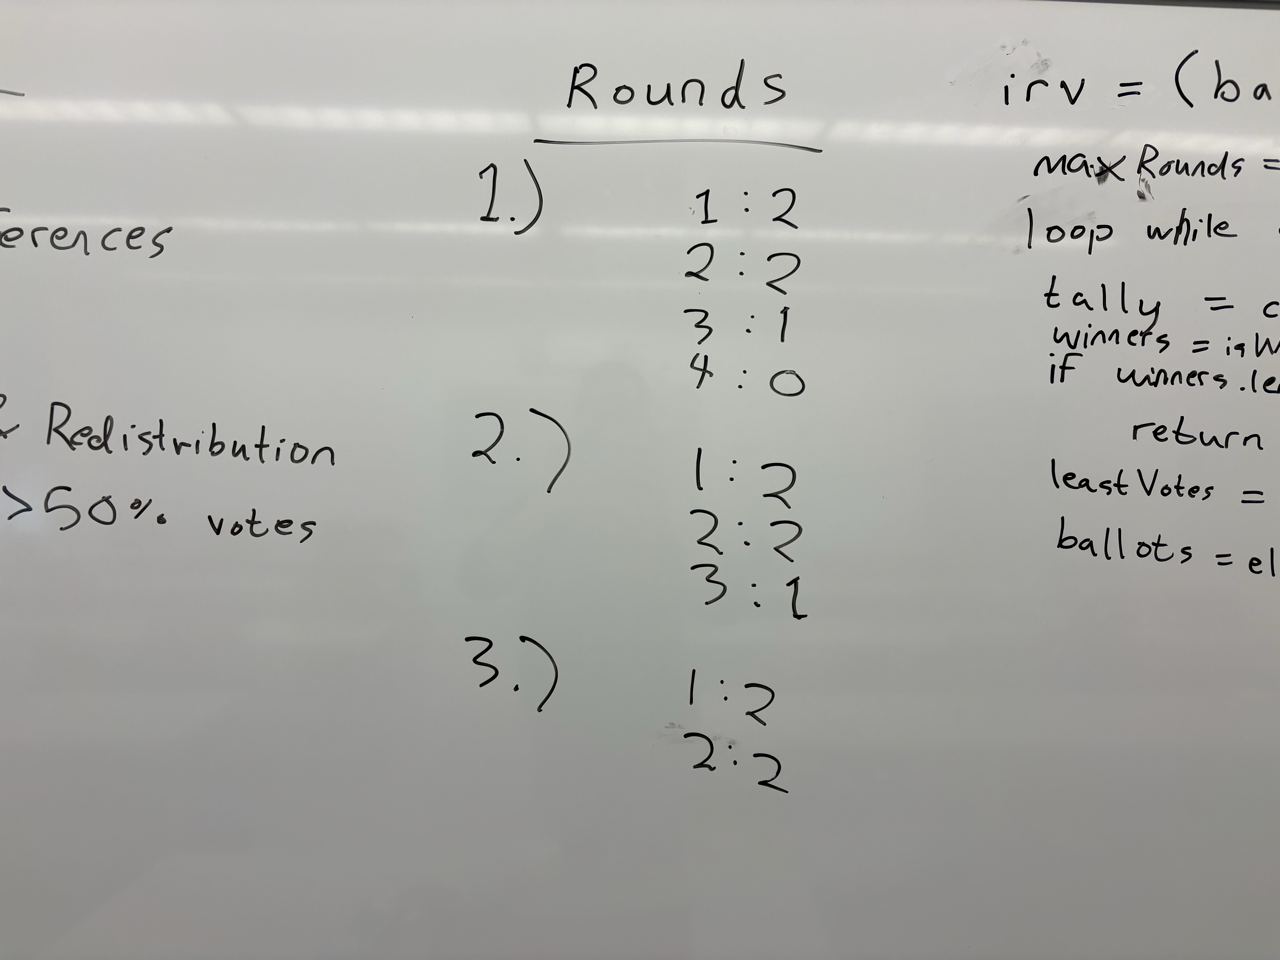 erences
& Redistribution
>50% votes
Rounds
1.)
1 : 2
2 : 2
3 : 1
4 : 0
2.)
1 : 2
2 : 2
3 : 1
3.)
1 : 2
2 : 2
irv = (ba
maxRounds =
loop while
tally = c
winners = isW
if winners.le
return
leastVotes =
ballots = el